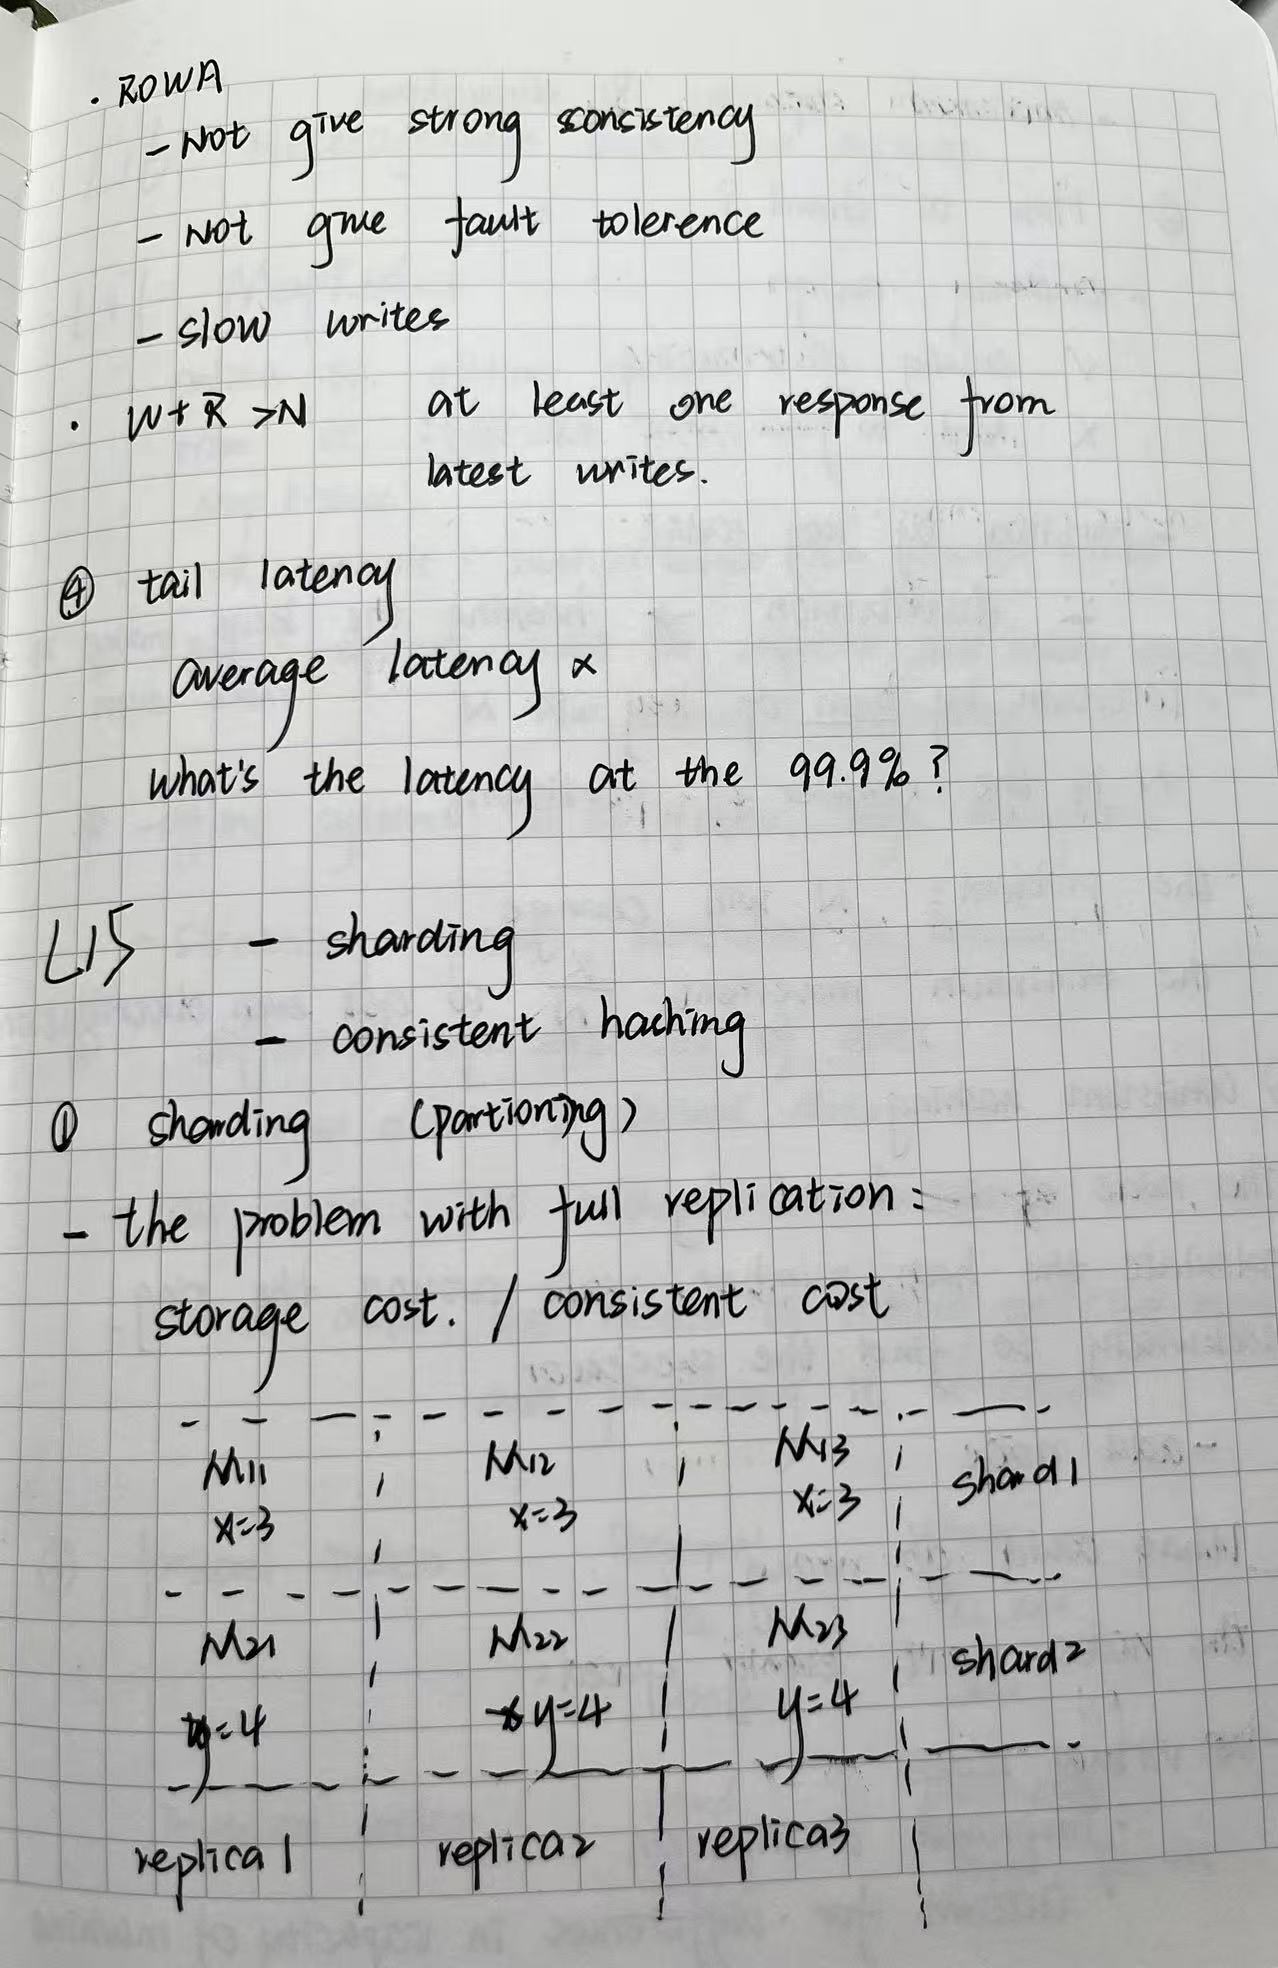 · ROWA
- Not give strong consistency
- Not give fault tolerence
- slow writes
· W+R >N at least one response from
latest writes.
④ tail latency
average latency ×
what's the latency at the 99.9% ?
L15 - sharding
- consistent hashing
① sharding (partioning)
- the problem with full replication :
storage cost. / consistent cost
M11 M12 M13 shard1
x=3 x=3 x=3
M21 M22 M23 shard2
y=4 y=4 y=4
replica1 replica2 replica3